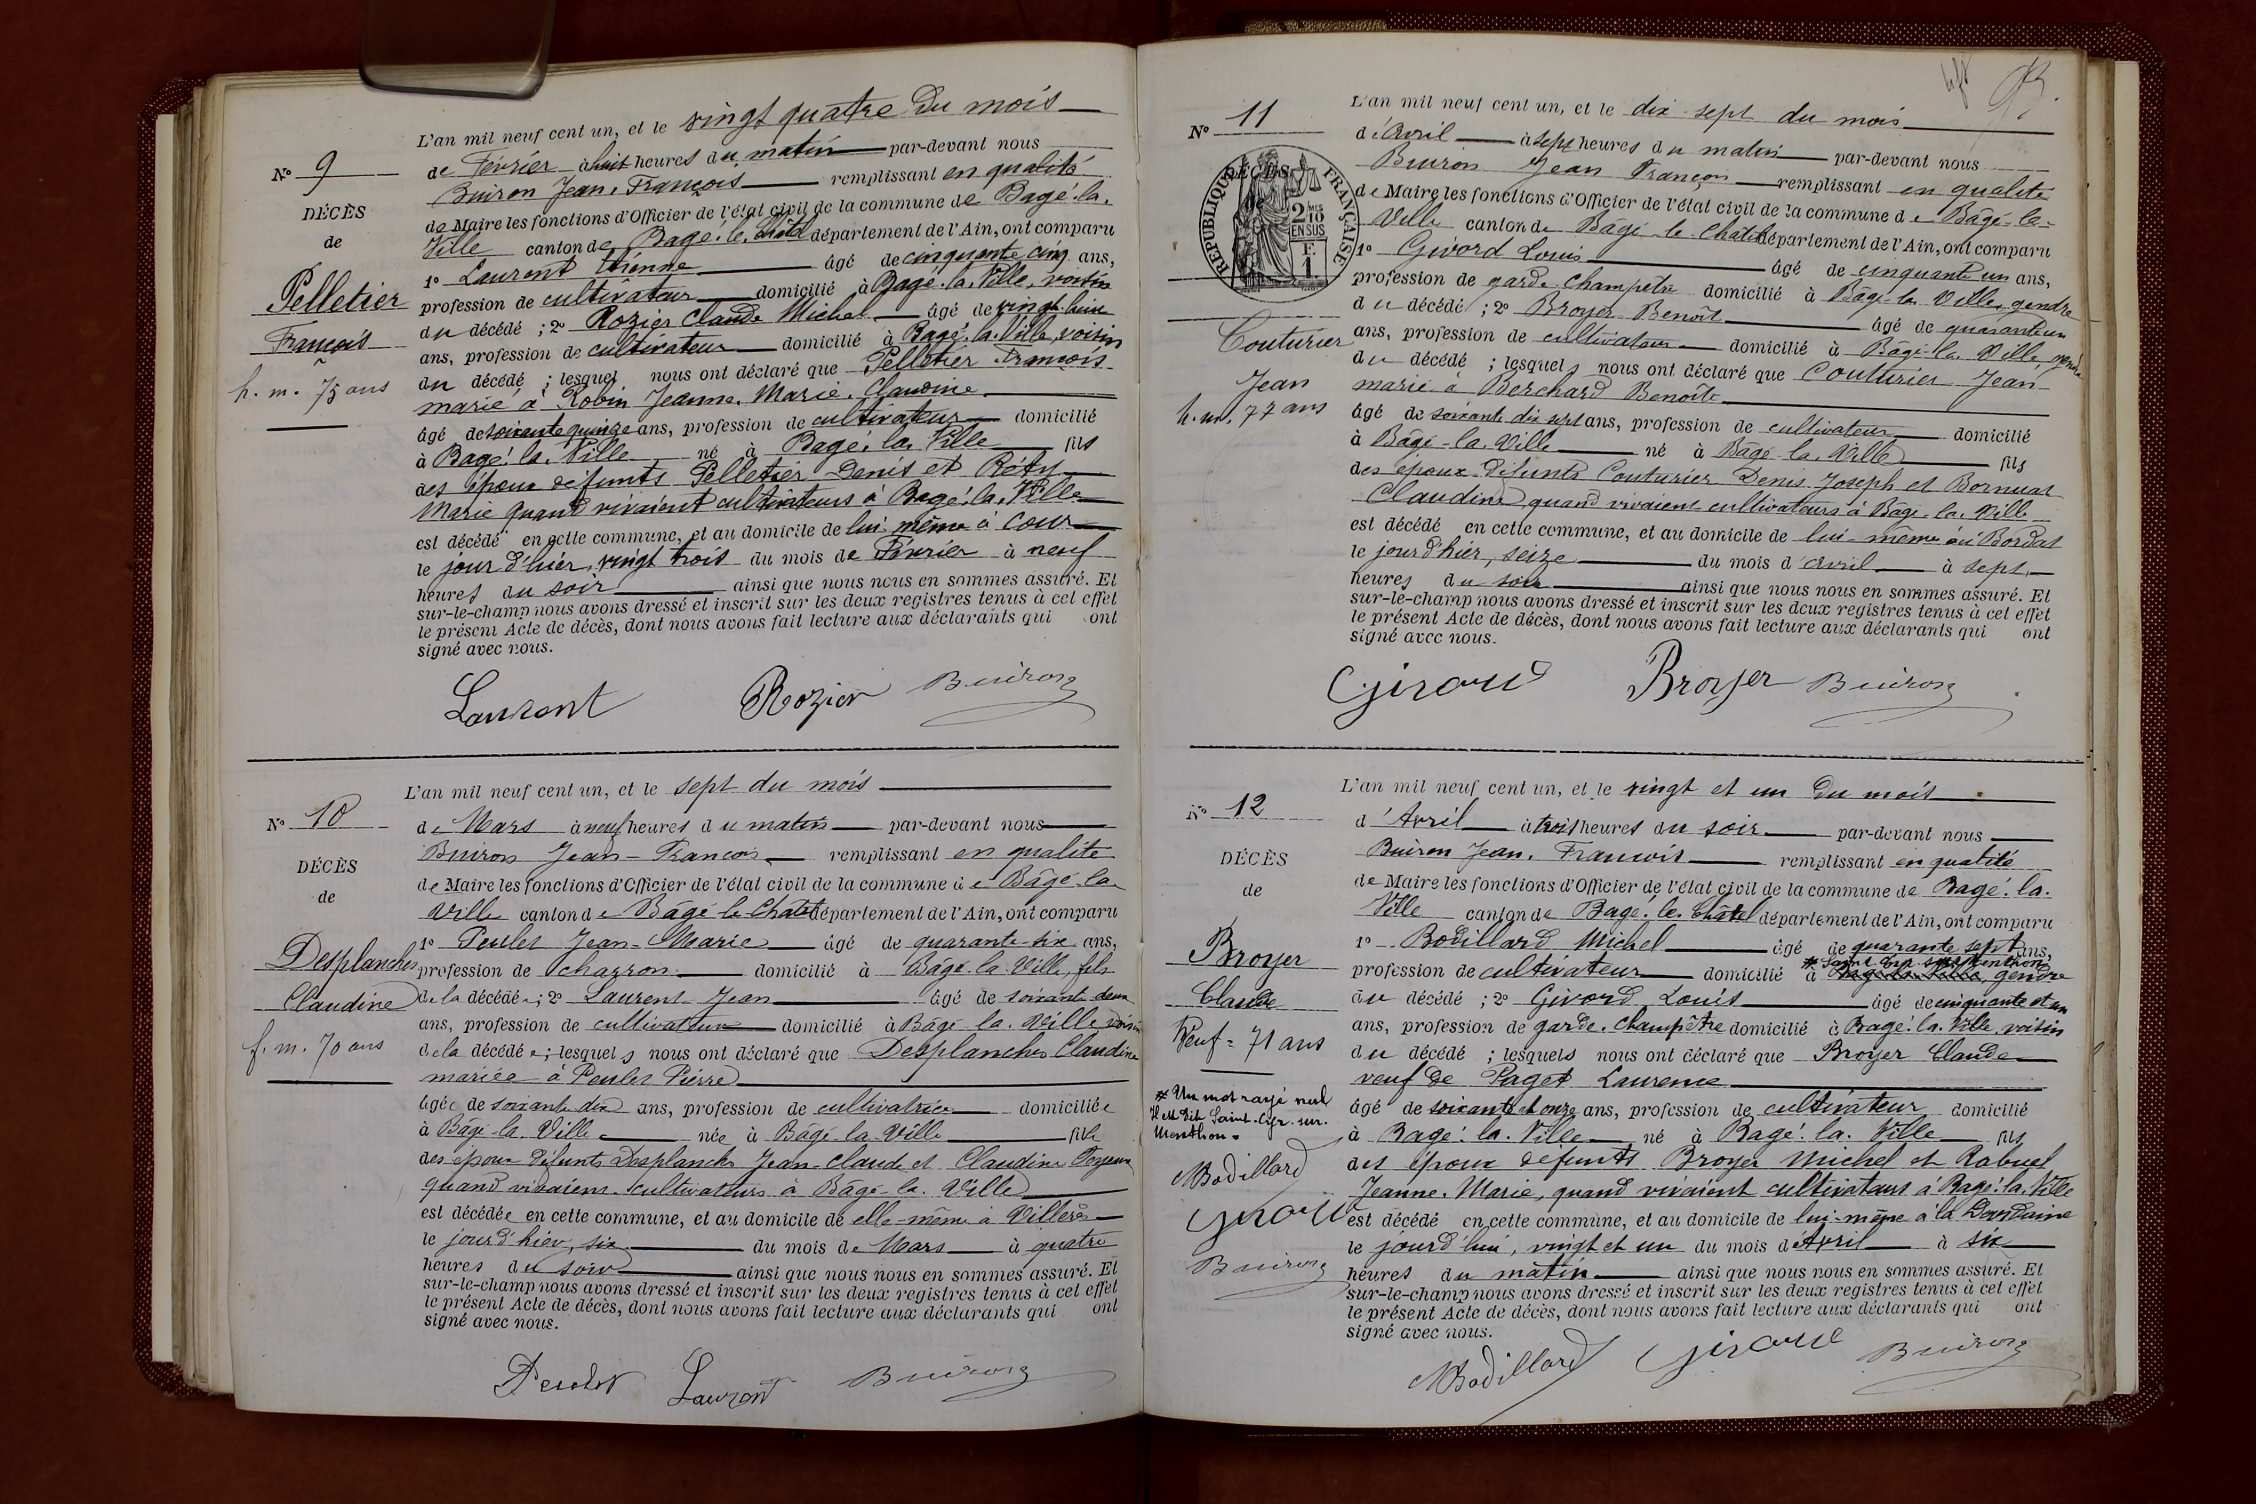 N° 9
DÉCÈS
de
Pelletier
François
h. m. 75 ans
L'an mil neuf cent un, et le vingt quatre du mois
de Février à huit heures du matin par-devant nous
Buiron Jean, François remplissant en qualité
de Maire les fonctions d'Officier de l'état civil de la commune de Bagé-la-
Ville canton de Bagé-le-Châtel département de l'Ain, ont comparu
1° Laurent Etienne âgé de cinquante cinq ans,
profession de cultivateur domicilié à Bagé-la-Ville, voisin
du décédé ; 2° Rozier Claude Michel âgé de vingt huit
ans, profession de cultivateur domicilié à Bagé-la-Ville, voisin
du décédé ; lesquel nous ont déclaré que Pelletier François
marié à Robin Jeanne, Marie, Claudine
âgé de soixante quinze ans, profession de cultivateur domicilié
à Bagé-la-Ville né à Bagé-la-Ville fils
des époux défunts Pelletier Denis et Réty
Marie quand vivaient cultivateurs à Bagé-la-Ville
est décédé en cette commune, et au domicile de lui même à Cour
le jour d'hier, vingt trois du mois de Février à neuf
heures du soir ainsi que nous nous en sommes assuré. Et
sur-le-champ nous avons dressé et inscrit sur les deux registres tenus à cet effet
le présent Acte de décès, dont nous avons fait lecture aux déclarants qui ont
signé avec nous.
Laurent Rozier Buiron
N° 10
DÉCÈS
de
Desplanches
Claudine
f. m. 70 ans
L'an mil neuf cent un, et le sept du mois
de Mars à neuf heures du matin par-devant nous
Buiron Jean-François remplissant en qualité
de Maire les fonctions d'Officier de l'état civil de la commune de Bâgé-la-
Ville canton de Bâgé-le-Châtel département de l'Ain, ont comparu
1° Peulet Jean-Marie âgé de quarante six ans,
profession de charron domicilié à Bâgé-la-Ville, fils
de la décédée ; 2° Laurent Jean âgé de soixante deux
ans, profession de cultivateur domicilié à Bâgé-la-Ville, voisin
de la décédée ; lesquels nous ont déclaré que Desplanches Claudine
mariée à Peulet Pierre
âgée de soixante dix ans, profession de cultivatrice domiciliée
à Bâgé-la-Ville née à Bâgé-la-Ville fille
des époux défunts Desplanches Jean-Claude et Claudine
quand vivaient cultivateurs à Bâgé-la-Ville
est décédée en cette commune, et au domicile de elle-même à Villerès
le jour d'hier, six du mois de Mars à quatre
heures du soir ainsi que nous nous en sommes assuré. Et
sur-le-champ nous avons dressé et inscrit sur les deux registres tenus à cet effet
le présent Acte de décès, dont nous avons fait lecture aux déclarants qui ont
signé avec nous.
Peulet Laurent Buiron
N° 11
DÉCÈS
RÉPUBLIQUE FRANÇAISE
2 MES
10
EN SUS
F.
1
Couturier
Jean
h. m. 77 ans
L'an mil neuf cent un, et le dix-sept du mois
d'Avril à sept heures du matin par-devant nous
Buiron Jean François remplissant en qualité
de Maire les fonctions d'Officier de l'état civil de la commune de Bâgé-la-
Ville canton de Bâgé-le-Châtel département de l'Ain, ont comparu
1° Givord Louis âgé de cinquante un ans,
profession de garde champêtre domicilié à Bâgé-la-Ville, gendre
du décédé ; 2° Broyer Benoît âgé de quarante un
ans, profession de cultivateur domicilié à Bâgé-la-Ville, gendre
du décédé ; lesquel nous ont déclaré que Couturier Jean
marié à Berchard Benoîte
âgé de soixante dix sept ans, profession de cultivateur domicilié
à Bâgé-la-Ville né à Bâgé-la-Ville fils
des époux défunts Couturier Denis Joseph et
Claudine quand vivaient cultivateurs à Bâgé-la-Ville
est décédé en cette commune, et au domicile de lui-même au Bordat
le jour d'hier, seize du mois d'Avril à sept
heures du soir ainsi que nous nous en sommes assuré. Et
sur-le-champ nous avons dressé et inscrit sur les deux registres tenus à cet effet
le présent Acte de décès, dont nous avons fait lecture aux déclarants qui ont
signé avec nous.
Givord Broyer Buiron
N° 12
DÉCÈS
de
Broyer
Claude
Veuf = 71 ans
L'an mil neuf cent un, et le vingt et un du mois
d'Avril à trois heures du soir par-devant nous
Buiron Jean, François remplissant en qualité
de Maire les fonctions d'Officier de l'état civil de la commune de Bagé-la-
Ville canton de Bagé-le-Châtel département de l'Ain, ont comparu
1° Bodillard Michel âgé de quarante sept ans,
* Saint Cyr sur Menthon
profession de cultivateur domicilié à Bagé-la-Ville, gendre
du décédé ; 2° Givord Louis âgé de cinquante et un
ans, profession de garde-champêtre domicilié à Bagé-la-Ville, voisin
du décédé ; lesquels nous ont déclaré que Broyer Claude
veuf de Paget Laurence
âgé de soixante et onze ans, profession de cultivateur domicilié
à Bagé-la-Ville né à Bagé-la-Ville fils
des époux défunts Broyer Michel et Rabuel
Jeanne, Marie, quand vivaient cultivateurs à Bagé-la-Ville
est décédé en cette commune, et au domicile de lui-même à la
le jour d'hui, vingt et un du mois d'Avril à six
heures du matin ainsi que nous nous en sommes assuré. Et
sur-le-champ nous avons dressé et inscrit sur les deux registres tenus à cet effet
le présent Acte de décès, dont nous avons fait lecture aux déclarants qui ont
signé avec nous.
* Un mot rayé nul
Il est dit Saint-Cyr-sur-
Menthon =
MBodillard
Givord
Buiron
MBodillard Givord Buiron